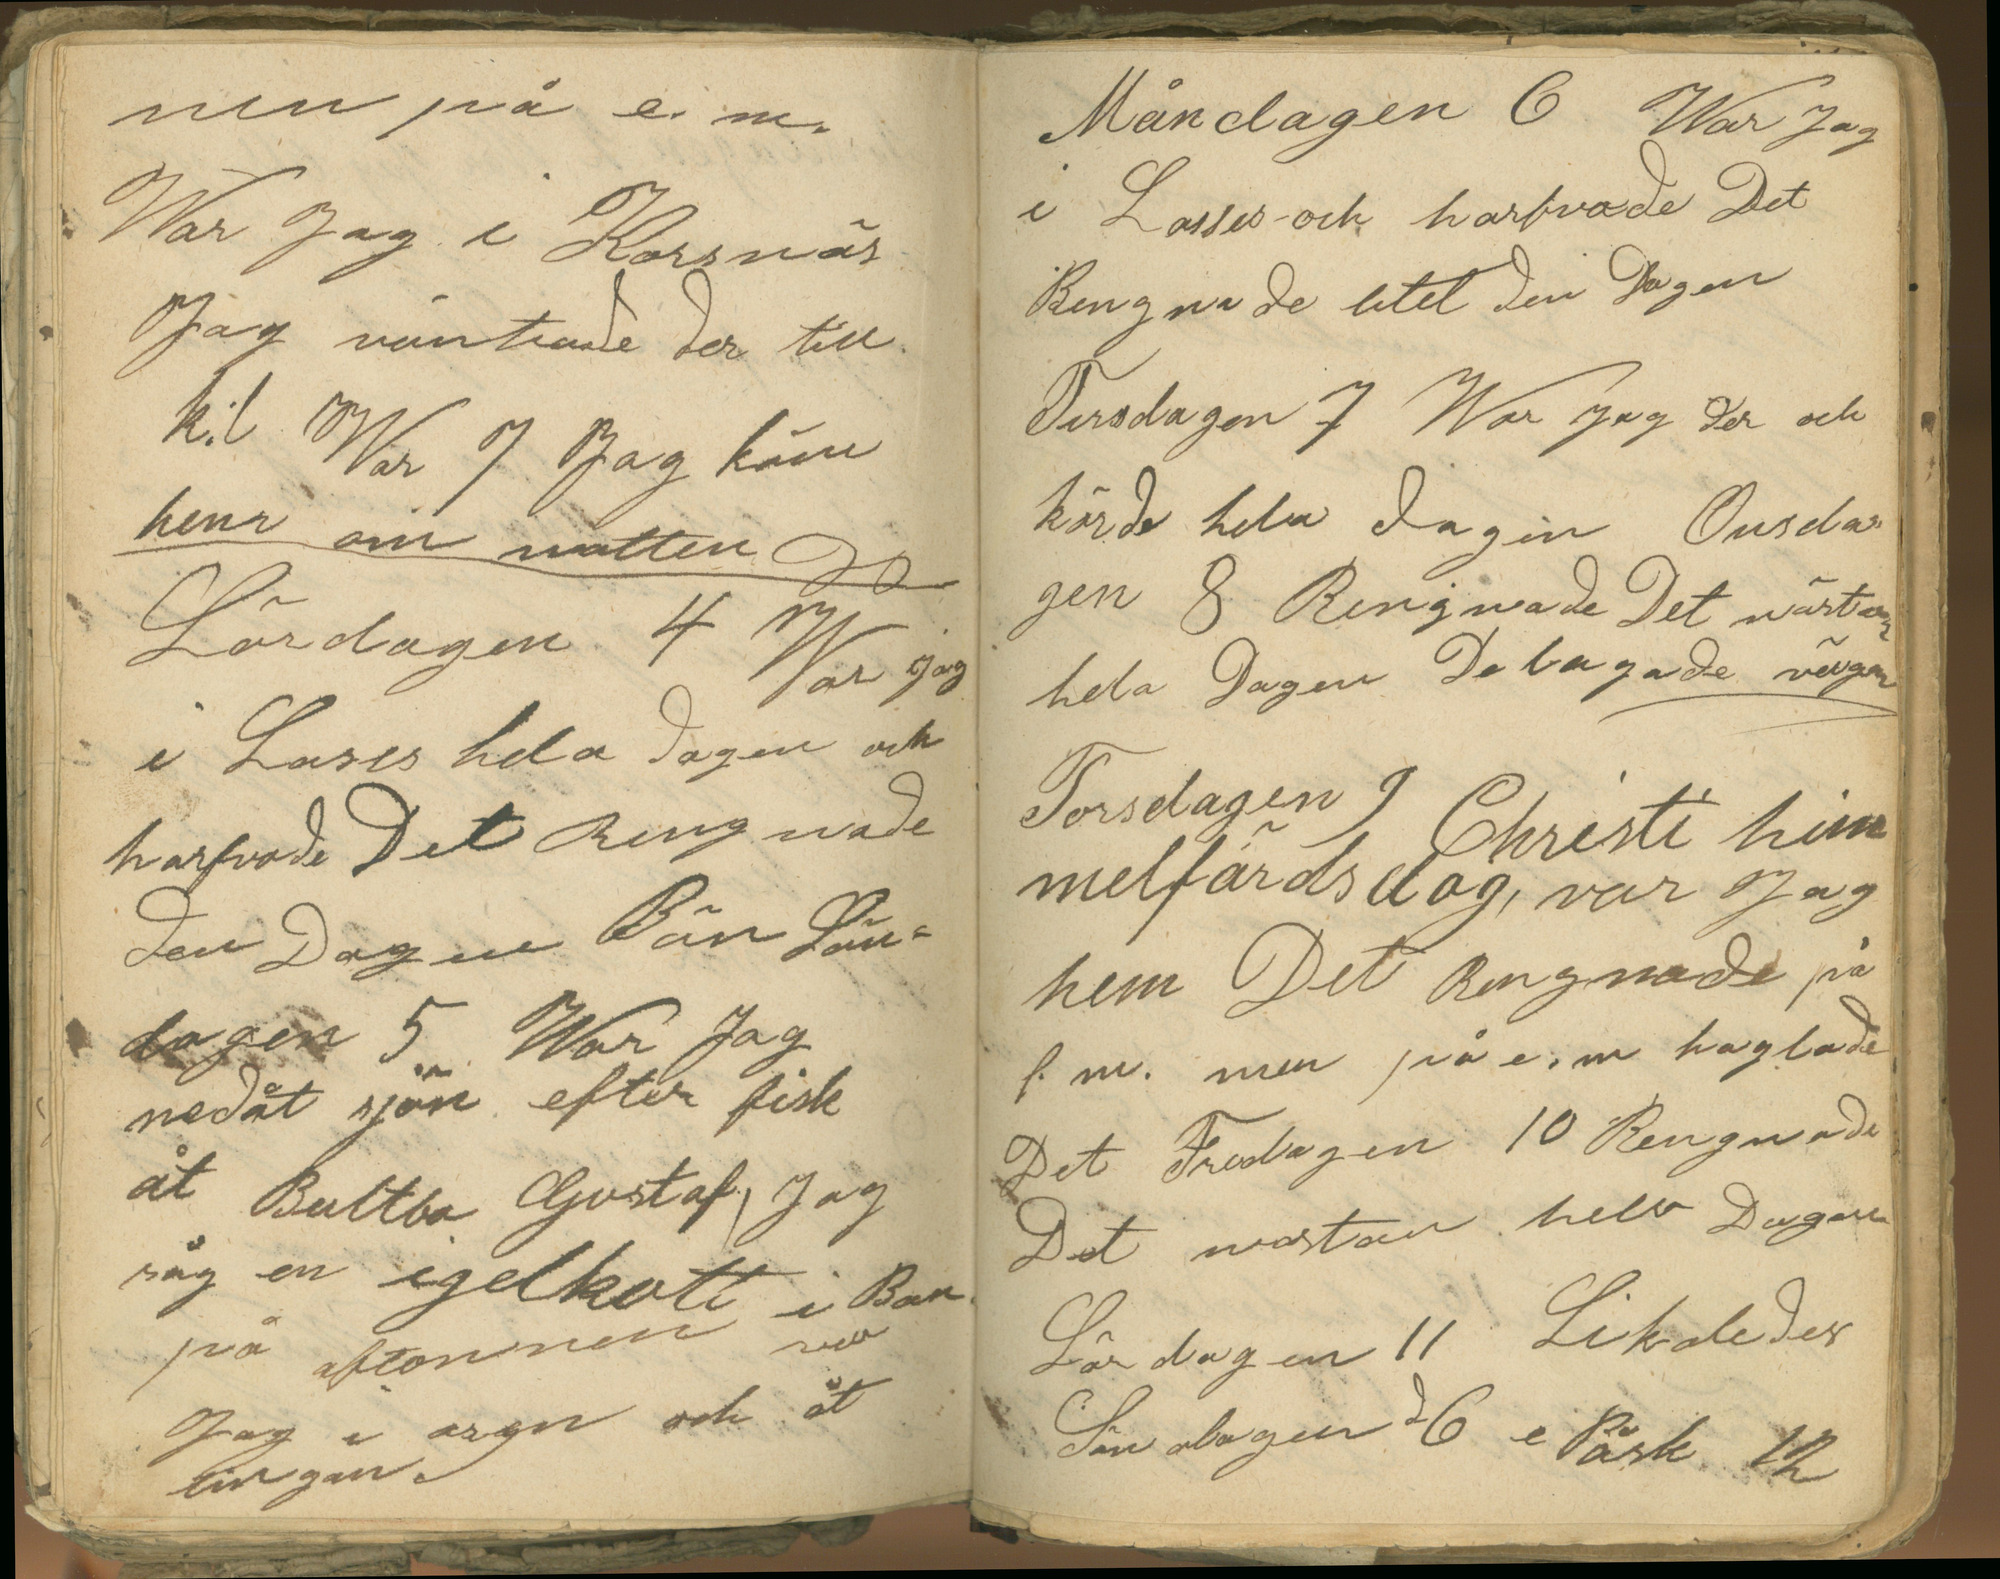 nen på e. m.
War Jag i Korsnäs
Jag väntade der till
k.l War 7 Jag kom
hem om natten
Lördagen 4 War jag
i Lases hela dagen och
harfvade Det Rengnade
den Dagen Bön Sön=
dagen 5 War Jag
nedåt sjön efter fisk
åt Bultba Gustaf, Jag
såg en igelkott i
på aftonnen var
Jag i och åt
Måndagen 6 War Jag
i Lasses och harfvade Det
Rengnade litet den Dagen
Tirsdagen 7 War Jag der och
körde hela dagen Onsda-
gen 8 Rengnade Det nästan
hela Dagen De lagade vägen
Torsdagen 9 Christi him
melfärdsdag, var Jag
hem Det Rengnade på
f. m. men på e. m haglade
Det Fredagen 10 Rengnade
Det nästan hela Dagen
Lördagen 11 Likaledes
Söndagen d 6 e Påsk 12